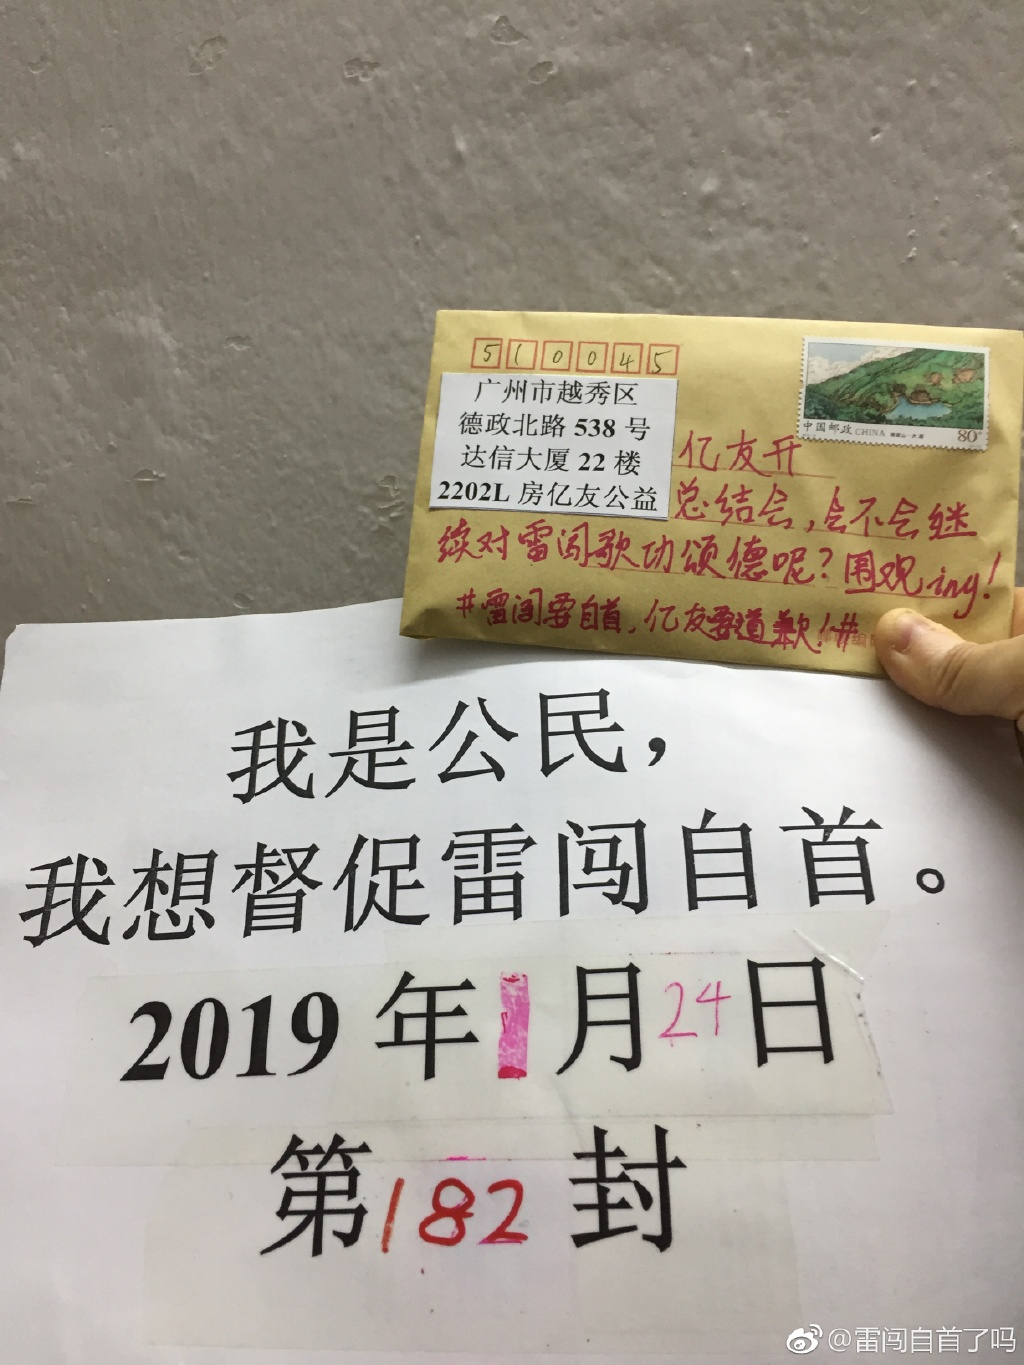 510045
广州市越秀区
德政北路 538 号
达信大厦 22 楼
2202L 房亿友公益
中国邮政 CHINA
80分
亿友开
总结会，会不会继
续对雷闯歌功颂德呢？围观ing！
#雷闯要自首，亿友要道歉！#
我是公民，
我想督促雷闯自首。
2019 年 1 月 24 日
第 182 封
@雷闯自首了吗